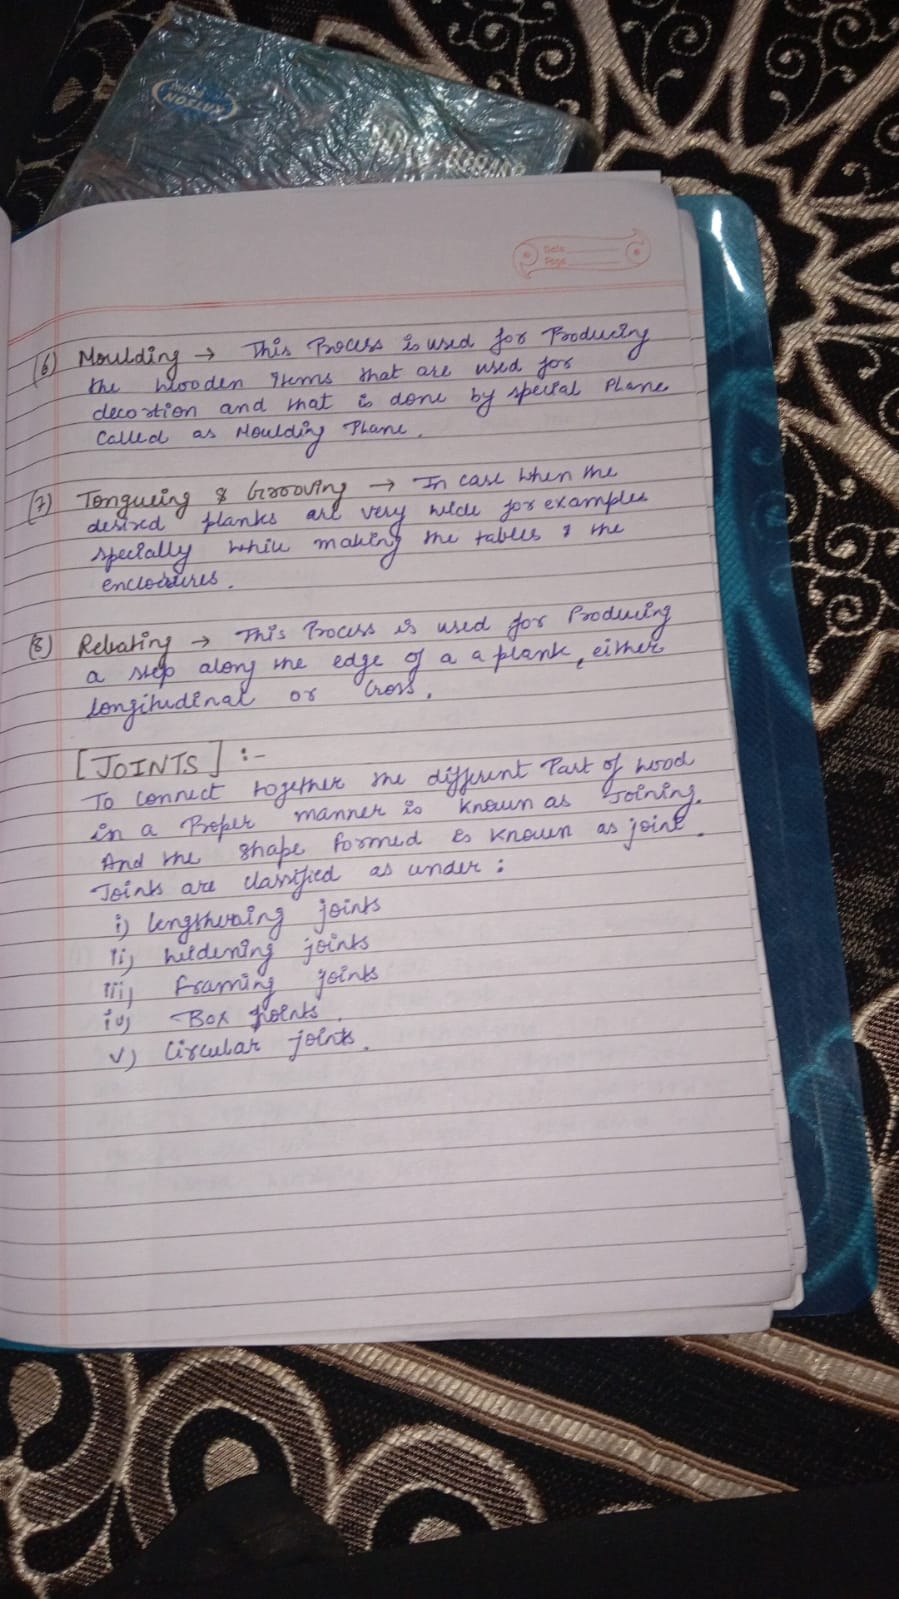 WATSON
Date
Page
(6) Moulding → This Process is used for Producing
the wooden items that are used for
decortion and that is done by special Plane
called as Moulding Plane.
(7) Tongueing & Grooving → In case when the
desired planks are very wide for examples
specially while making the tables & the
enclosures.
(8) Rebating → This Process is used for Producing
a step along the edge of a a plank, either
longitudinal or Cross.
[JOINTS] :-
To connect together the different Part of wood
in a Proper manner is known as Joining.
And the shape formed is known as joint.
Joints are classified as under :
i) lengthening joints
ii) widening joints
iii) framing joints
iv) Box joints.
v) Circular joints.